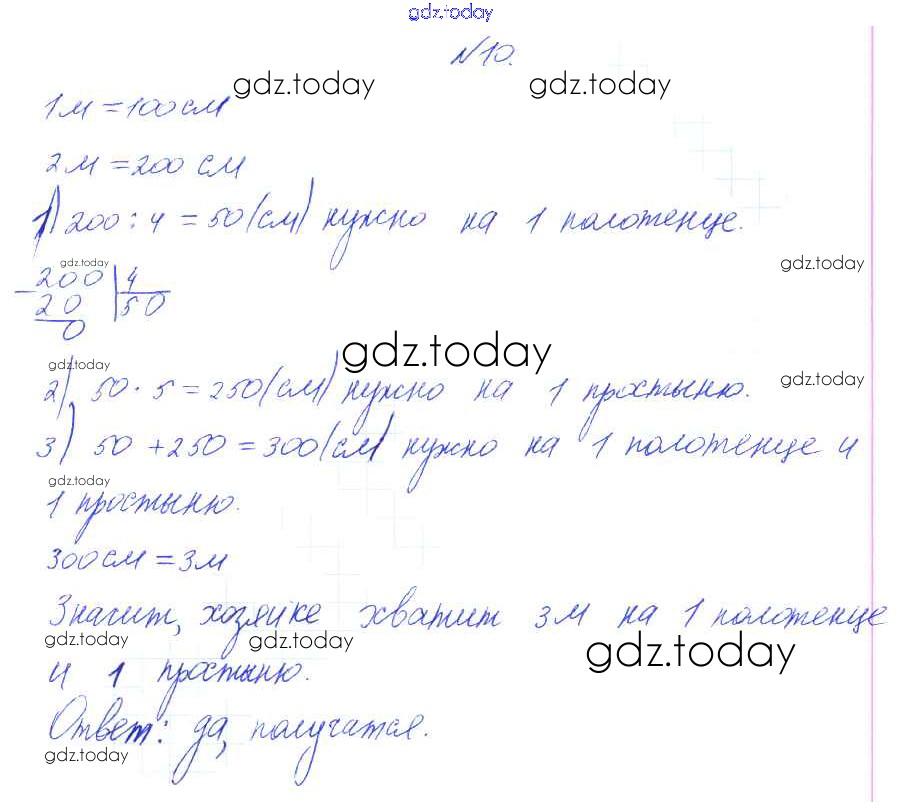 gdz.today
№10.
gdz.today gdz.today
1м = 100см
2м = 200 см
1) 200 : 4 = 50 (см) нужно на 1 полотенце.
gdz.today
gdz.today
200 4
20 50
0
gdz.today
gdz.today
gdz.today
2) 50 · 5 = 250 (см) нужно на 1 простыню.
3) 50 + 250 = 300 (см) нужно на 1 полотенце и
gdz.today
1 простыню.
300см = 3м
Значит, хозяйке хватит 3м на 1 полотенце
gdz.today gdz.today gdz.today
и 1 простыню.
Ответ: да, получатся.
gdz.today